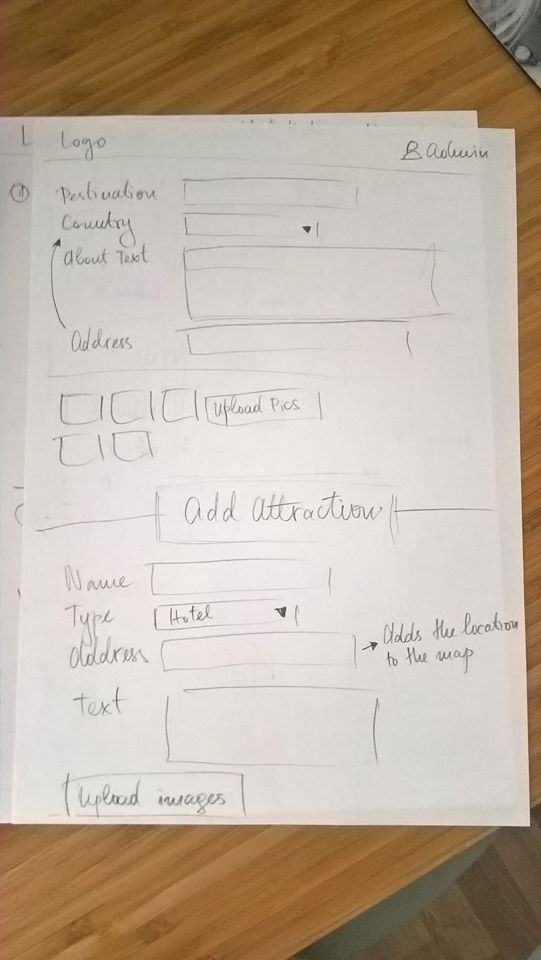 L
Logo
Admin
1
Destination
Country
About Text
Address
Upload Pics
Add Attraction
Name
Type Hotel
Address
Adds the location
to the map
Text
Upload images